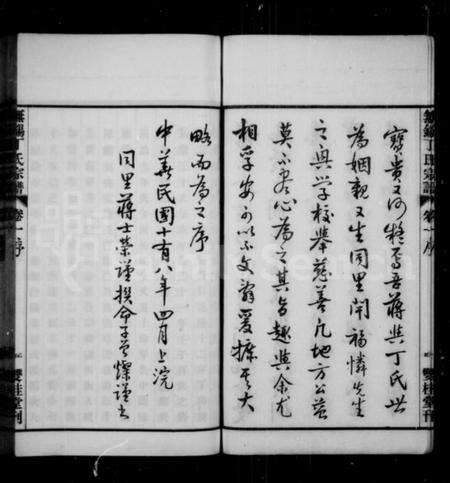 無錫丁氏宗譜 卷一序 一 雙桂堂刊
寶貴又何疑焉吾蔣與丁氏世
為姻親又生同里閈福憐先生
之興學校舉慈善凡地方公益
莫不盡心為之其旨趣與余尤
相孚安可以不文辭爰攄其大
略而為之序
中華民國十有八年四月上浣
同里蔣士榮謹撰命子曾燦謹書
無錫丁氏宗譜 卷一序 一 雙桂堂刊